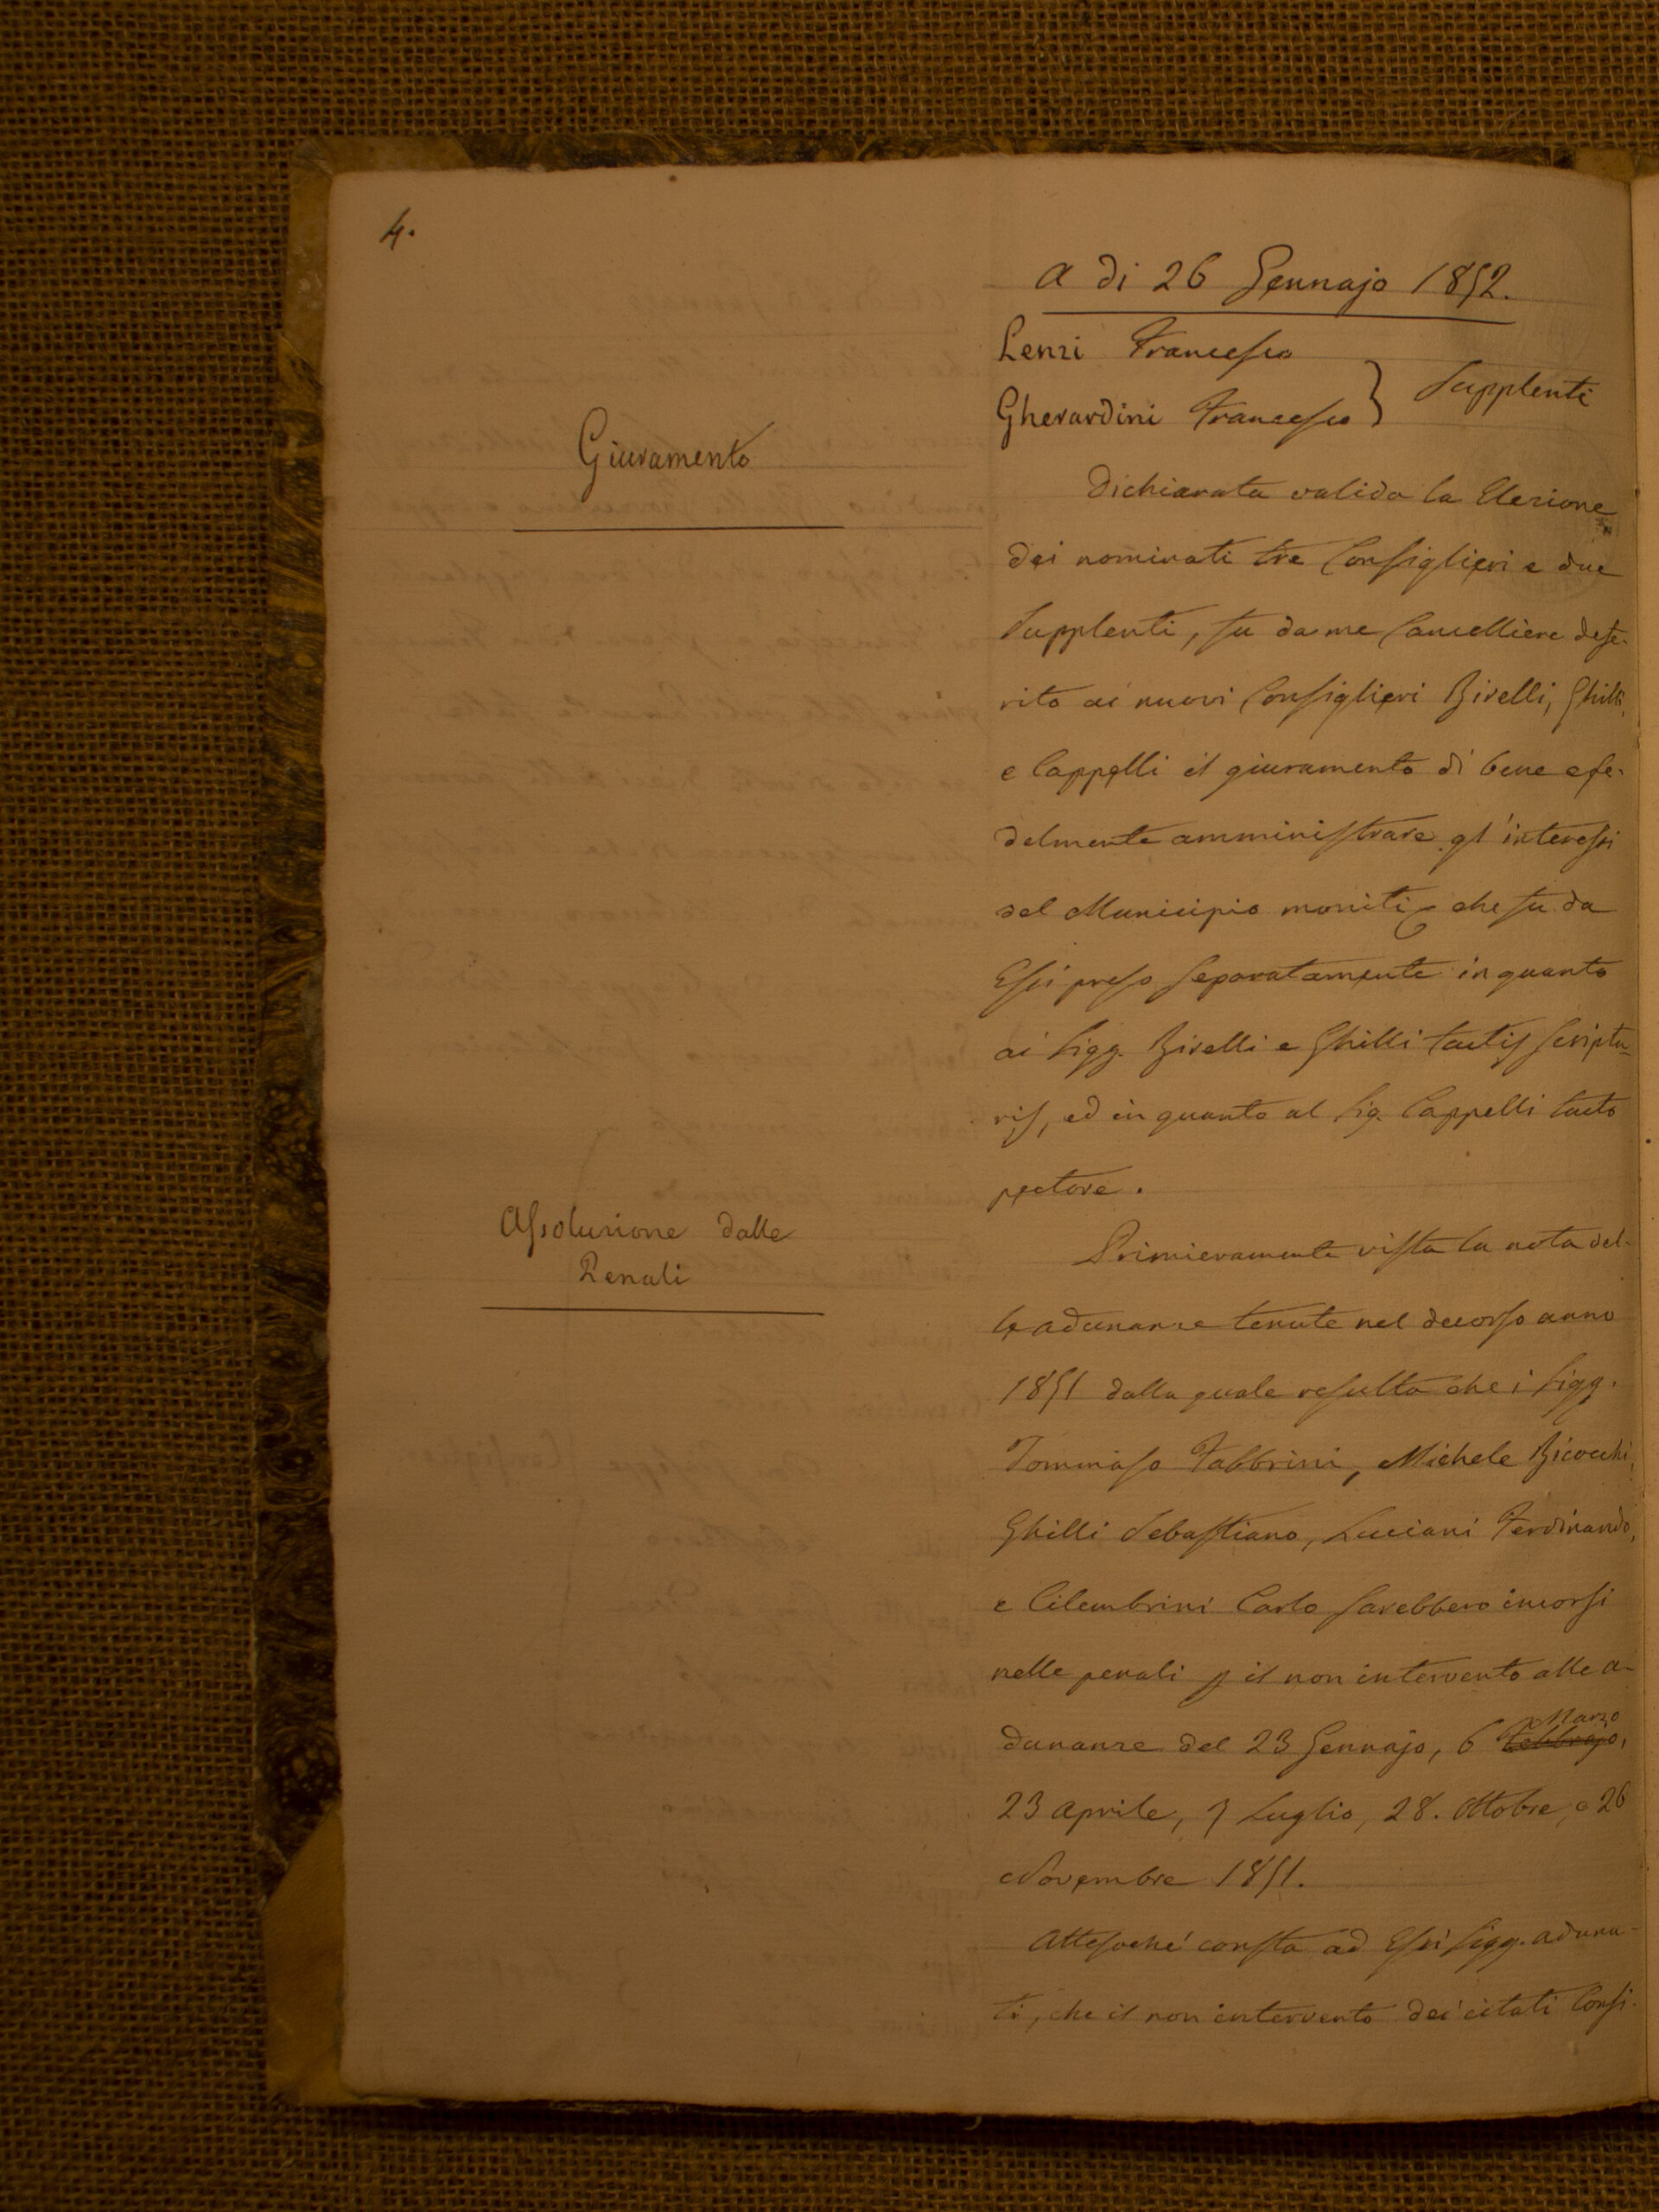 4.
A di 26 Gennajo 1852.
Lenzi Francesco
Gherardini Francesco } Supplenti
Giuramento
Dichiarata valida la Elezione
dei nominati tre Consiglieri e due
Supplenti, fu da me Cancelliere defe-
rito ai nuovi Consiglieri Birelli, Ghilli,
e Cappelli il giuramento di bene e fe-
delmente amministrare gl'interessi
del Municipio moniti che fu da
Essi preso separatamente in quanto
ai Sigg. Birelli e Ghilli tactis scriptu-
ris, ed in quanto al Sig. Cappelli tacto
pectore.
Assoluzione dalle
Penali
Primieramente vista la nota del-
le adunanze tenute nel decorso anno
1851 dalla quale resulta che i Sigg.
Tommaso Fabbrini, Michele Bicocchi,
Ghilli Sebastiano, Luciani Ferdinando,
e Cilembrini Carlo sarebbero incorsi
nelle penali p il non intervento alle a-
dunanze del 23 Gennajo, 6 Febbrajo, Marzo
23 Aprile, 7 Luglio, 28. Ottobre, e 26
Novembre 1851.
Attesochè consta ad Essi Sigg. aduna-
ti, che il non intervento dei citati Consi-